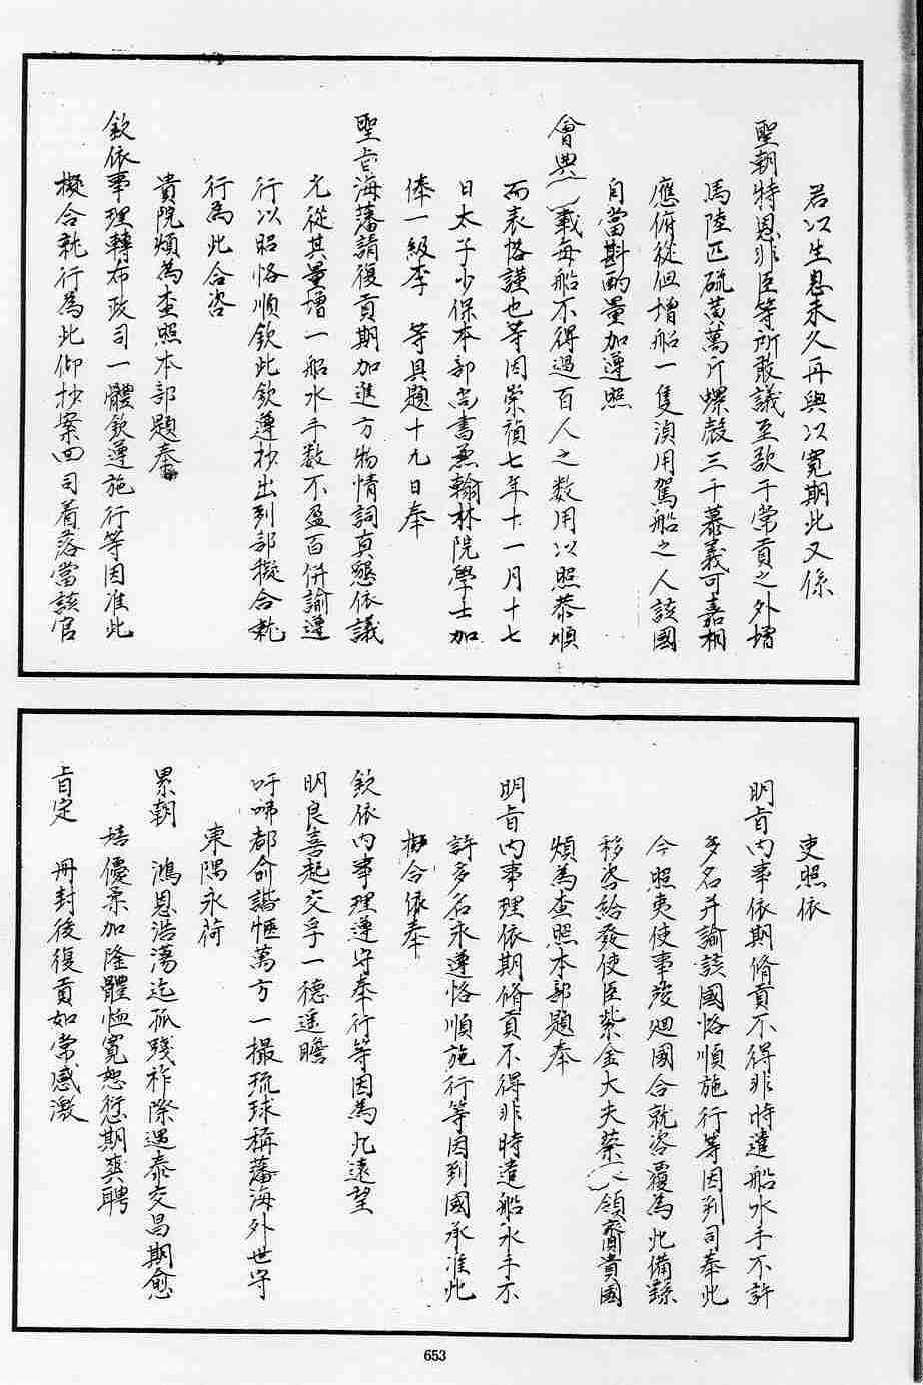 君以生息未久再與以寬期此又係
聖朝特恩非臣等所敢議至欵于常貢之外增
馬陸匹硫黄萬斤螺殼三千慕義可嘉相
應俯從但增船一隻湏用駕船之人該國
自當斟酌量加遵照
會典(一)載每船不得過百人之数用以照恭順
而表恪謹也等因崇禎七年十一月十七
日太子少保本部尚書兼翰林院學士加
俸一級李 等具題十九日奉
聖旨海藩請復貢期加進方物情詞真懇依議
允從其量增一船水手数不盈百併諭遵
行以昭恪順欽此欽遵抄出到部擬合就
行為此合咨
貴院煩為查照本部題奉
欽依事理轉布政司一體欽遵施行等因准此
擬合就行為此仰抄案回司着落當該官
吏照依
明旨内事依期脩貢不得非時遣船水手不許
多名并諭該國恪順施行等因到司奉此
今照夷使事竣廻國合就咨覆為此備繇
移咨給發使臣紫金大夫蔡(一)領齎貴國
煩為查照本部題奉
明旨内事理依期脩貢不得非時遣船水手不
許多名永遵恪順施行等因到國承准此
擬合依奉
欽依内事理遵守奉行等因為此遠望
明良喜起交孚一德遥瞻
吁咈都俞諧愜萬方一撮琉球稱藩海外世守
東隅永荷
累朝 鴻恩浩蕩迄孤踐祚際遇泰交昌期愈
培優柔加隆體恤寬恕愆期與聘
旨定 冊封後復貢如常感激
653